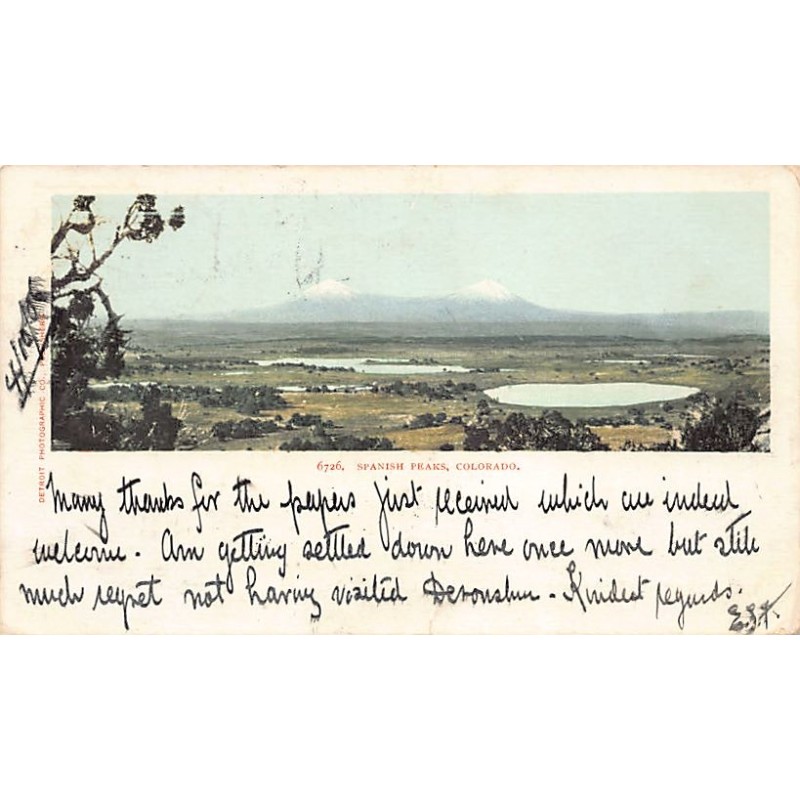 6726. SPANISH PEAKS, COLORADO.
Many thanks for the papers just received which are indeed
welcome. Am getting settled down here once more but still
much regret not having visited Devonshire. Kindest regards.
DETROIT PHOTOGRAPHIC CO.